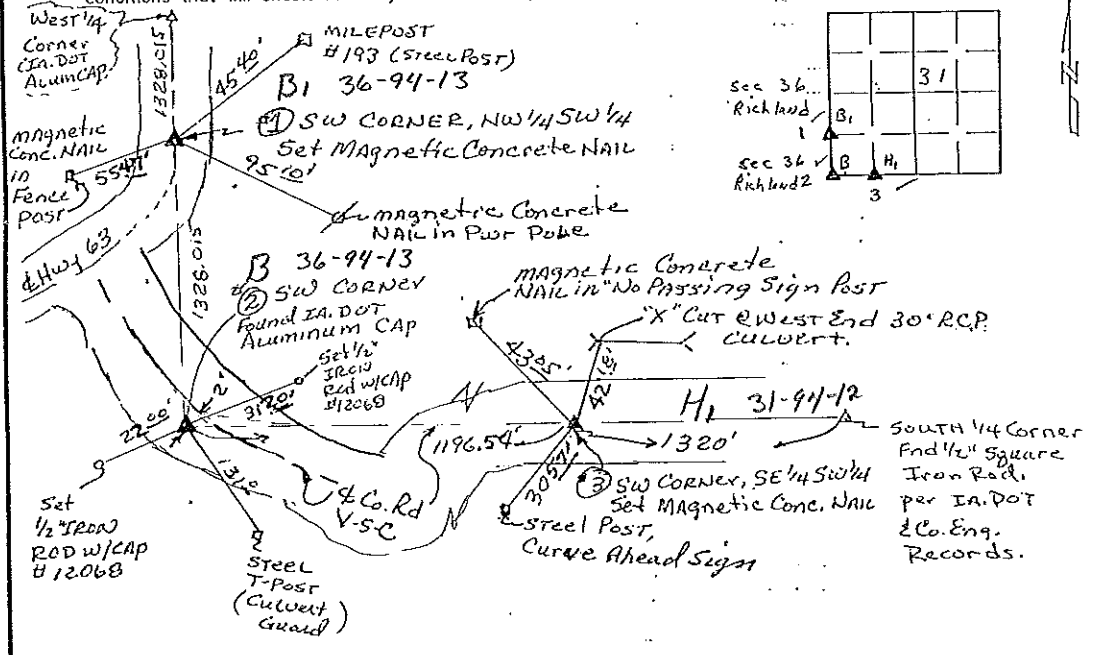 West 1/4
Corner
(IA. DOT
Alum CAP)
1328.015
45.40'
MILEPOST
#193 (Steel Post)
B1 36-94-13
① SW CORNER, NW 1/4 SW 1/4
Set MAgnetic Concrete NAIL
magnetic
Conc. NAIL
in
Fence
Post
95.10'
magnetic Concrete
NAIL in Pwr Pole
℄ Hwy 63
1328.015
B 36-94-13
② SW CORNER
Found IA. DOT
Aluminum CAp
Set 1/2"
IRON
Rod w/CAp
#12068
31.20'
2'
22.00'
Set
1/2" IRON
ROD w/CAp
# 12068
STEEL
T-Post
(Culvert
Guard)
℄ Co. Rd
V-5-C
MAgnetic Concrete
NAIL in "No PAssing Sign Post
"X" CuT @ West End 30' R.C.P.
Culvert.
43.05'
1196.54'
1320'
H1 31-94-12
③ SW CORNER, SE 1/4 SW 1/4
Set MAGNetic Conc. NAIL
Steel Post,
Curve Ahead Sign
SOUTH 1/4 Corner
Fnd 1/2" Square
Iron Rod,
per IA. DOT
& Co. Eng.
Records.
31
sec 36
Richland
1
B1
sec 36
Richland 2
B
H1
3
N